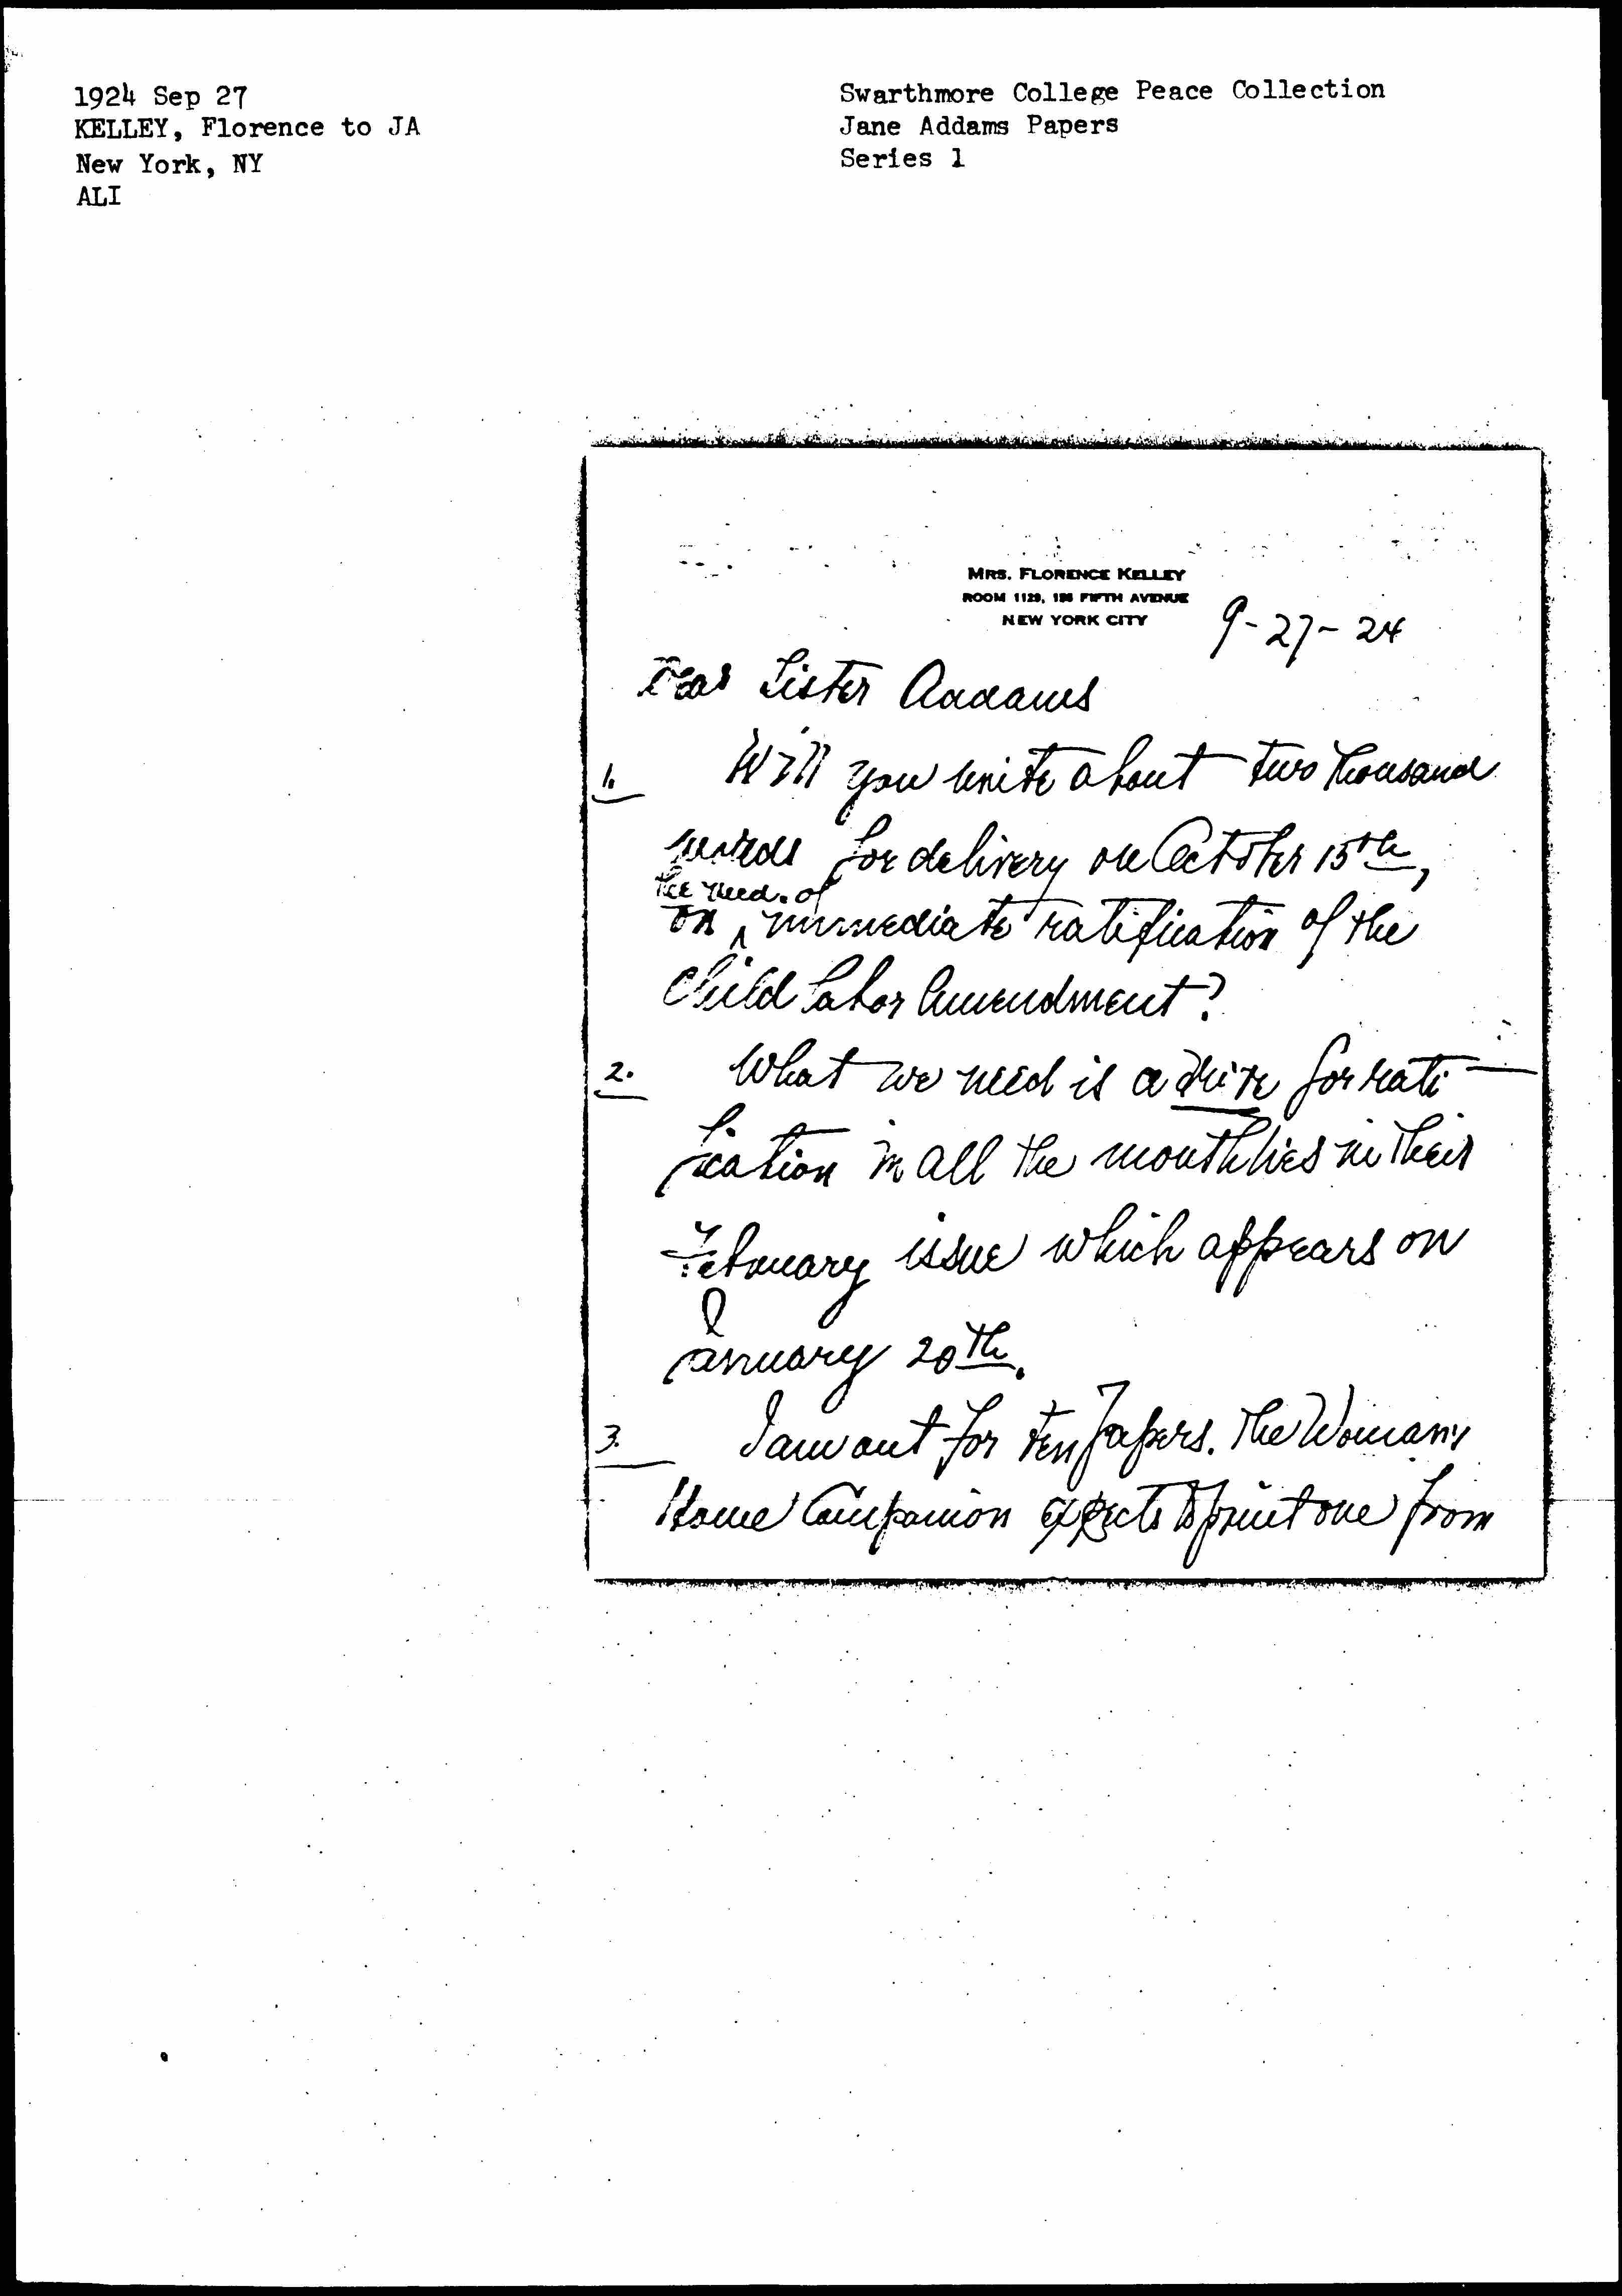 1924 Sep 27
KELLEY, Florence to JA
New York, NY
ALI
Swarthmore College Peace Collection
Jane Addams Papers
Series 1
MRS. FLORENCE KELLEY
ROOM 1129, 156 FIFTH AVENUE
NEW YORK CITY
9-27-24
Dear Sister Addams
1. Will you write about two thousand
words for delivery on October 15th,
the need of
on ^ immediate ratification of the
Child Labor Amendment?
2. What we need is a drive for rati
fication in all the monthlies in their
February issue which appears on
January 20th.
3. I am out for ten papers. The Woman's
Home Companion expects to print one from